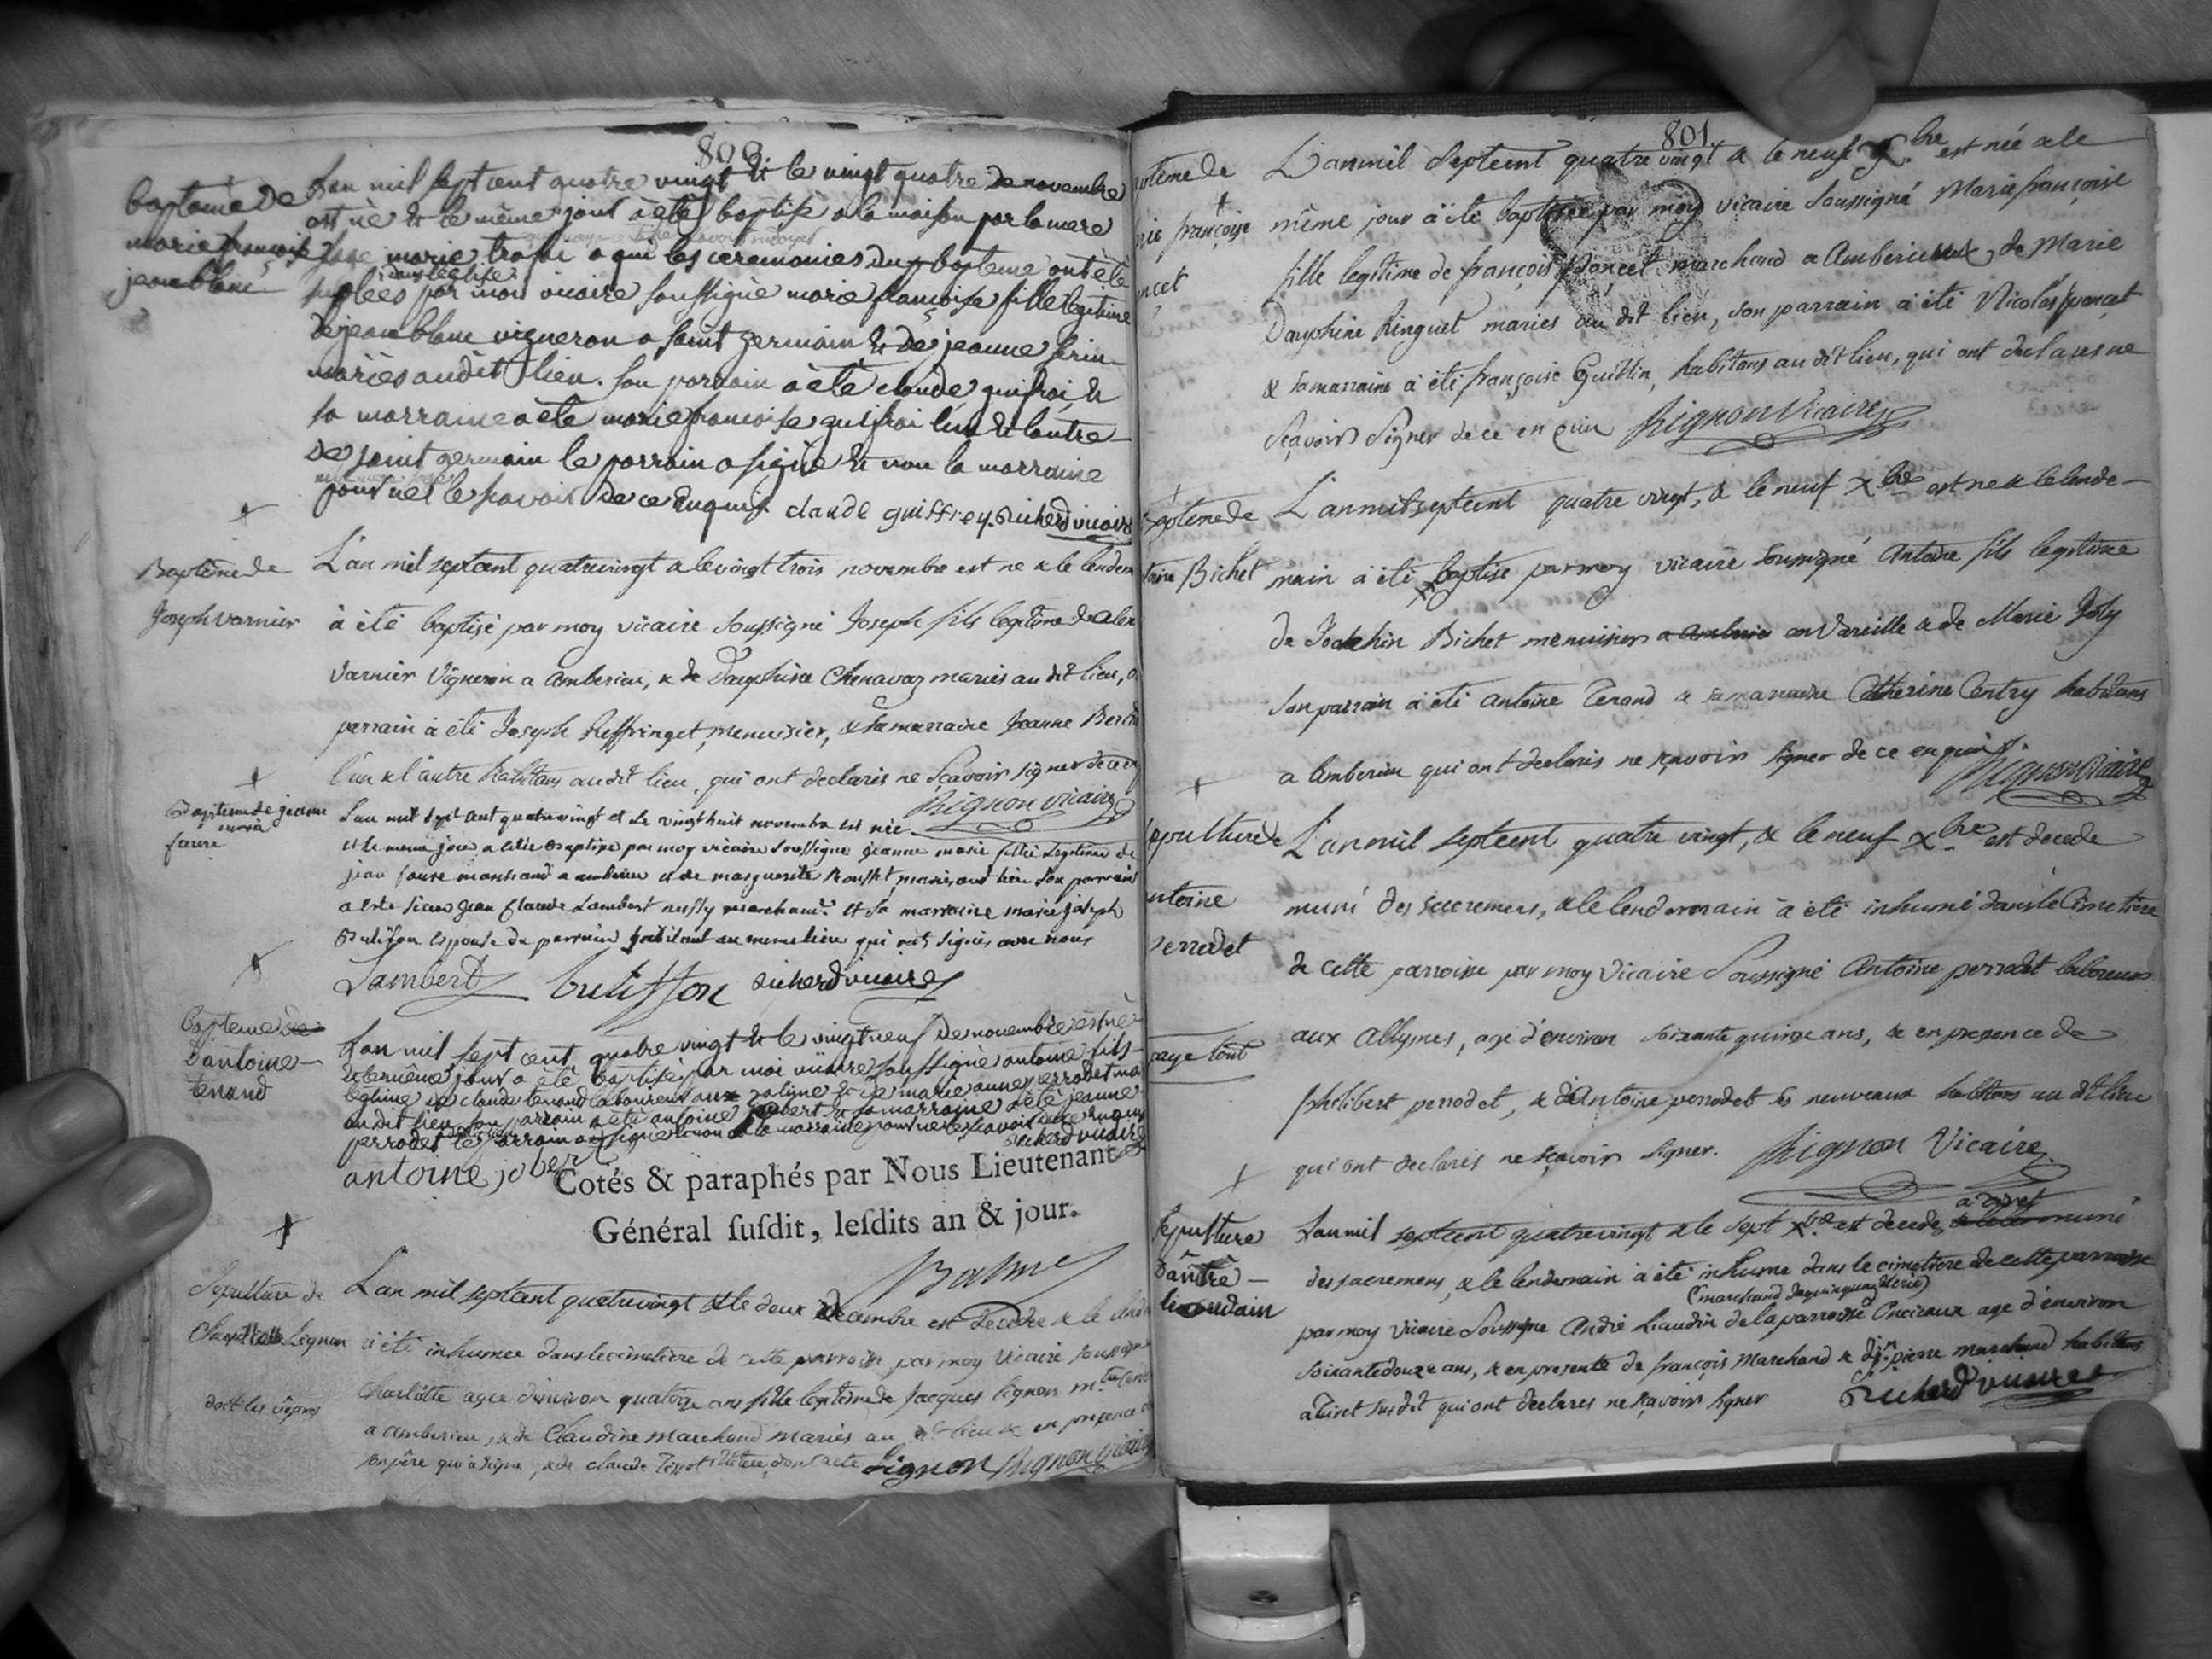 800
baptême de
marie francoise
jeanblanc
L'an mil sept cent quatre vingt et le vingt quatre de novembre
est née et le même jour a été baptisé a la maison par la mere
sage marie a qui les ceremonies du bapteme ont été
dans l'eglise
suplées par moi vicaire soussigné marie francoise fille legitime
de jeanblanc vigneron a saint germain et de jeanne
mariés audit lieu. son parrain a été claude guifrai, et
sa marraine a été marie francoise guifrai l'un et l'autre
de saint germain le parrain a signé et non la marraine
pour ne le savoir de ce enquis. claude guiffrey. Richerd vicaire
Baptême de
Joseph varnier
L'an mil septcent quatrevingt & le vingt trois novembre est né & le lendem
à été baptisé par moy vicaire soussigné Joseph fils legitime de alex
varnier Vigneron a Amberieu, & de Dauphine Chenavaz mariés au dit lieu,
parrain à été Joseph Reffringet, Menuisier, & sa marraine Jeanne
l'un & l'autre habitans audit lieu, qui ont declarés ne sçavoir signer de ce en
Rignon vicaire
Bapteme de jeanne
marie
favre
L'an mil sept cent quatrevingt et le vingt huit novembre est née
et le meme jour a été baptisée par moy vicaire soussigné jeanne marie fille legitime de
jean favre marchand a amberieu et de marguerite Rousset mariés aud lieu son parrain
a été sieur jean Claude Lambert marchand et sa marraine marie joseph
Butifon epouse du parrain habitant au meme lieu qui ont signés avec nous
Lambert butiffon Richerd vicaire
bapteme de
d'antoine
tenand
L'an mil sept cent quatre vingt et le vingt neuf de novembre est né
et le même jour a été baptisé par moi vicaire soussigné antoine fils
legitime de claude tenand laboureur aux et de marie anne perrodet ma
au dit lieu son parrain a été antoine jobert et sa marraine a été jeanne
perrodet le parrain a signé et non la marraine pour ne le scavoir de ce enquis
Richerd vicaire
antoine jobert
Cotés & paraphés par Nous Lieutenant
Général susdit, lesdits an & jour.
Sepulture de
Charlotte Lignon
doct les vêpres
L'an mil septcent quatrevingt & le deux decembre est decedée & le
à été inhumée dans le cimetiere de cette parroisse par moy Vicaire soussigné
Charlotte agée d'environ quatorze ans fille legitime de Jacques Lignon
a amberieu, & de Claudine Marchand mariés au dt lieu & en presence
son père qui a signé, & de claude Lignon Rignon vicaire
801
ptême de
rie françoise
ncet
L'an mil septcent quatre vingt & le neuf Xbre est née & le
même jour à été baptisée par moy vicaire soussigné Marie françoise
fille legitime de françois Poncet marchand a Amberieux, de Marie
Dauphine Ringuet mariés au dit lieu, son parrain à été Nicolas poncet
& sa marraine à été françoise Guillin, habitans au dit lieu, qui ont declarés ne
sçavoir signer de ce enquis Rignon Vicaire
Baptême de
toine Bichet
L'an mil septcent quatre vingt, & le neuf Xbre est né & le lende-
main à été baptisé par moy vicaire soussigné Antoine fils legitime
de Joachin Bichet menuisier a amberieu en Vareille & de Marie Joly
son parrain à été antoine Tenand & sa marraine Catherine habitans
a amberieu qui ont declarés ne sçavoir signer de ce enquis Rignon vicaire
epulture de
ntoine
perrodet
paye tout
L'an mil septcent quatre vingt, & le neuf Xbre est decedé
muni des sacremens, & le lendemain à été inhumé dans le Cimetiere
de cette parroisse par moy Vicaire Soussigné Antoine perrodet laboureur
aux allymes, agé d'environ soixante quinze ans, & en presence de
philibert perrodet, & d'Antoine perrodet ses neuveaux habitans au dt lieu
qui ont declarés ne sçavoir signer. Rignon Vicaire
Sepulture
d'andré
liaudain
L'an mil septcent quatrevingt & le sept Xbre est decedé, a tiret muni
des sacremens, & le lendemain à été inhumé dans le cimetiere de cette parroisse
par moy Vicaire Soussigné André Liaudin de la parroisse age d'environ
soixante douze ans, & en presence de françois Marchand & de jn pierre marchand habitans
a tiret susdit qui ont declarés ne sçavoir signer Richerd vicaire